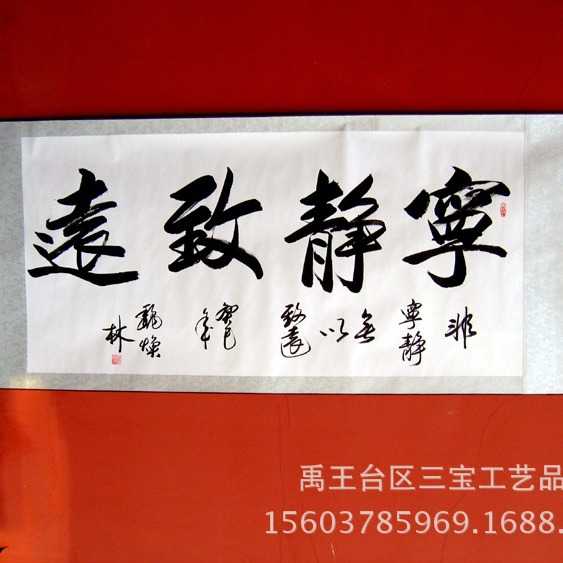 寧靜致遠
非
寧靜
無以
致遠
癸巳
年
林
禹王台区三宝工艺品
15603785969.1688.